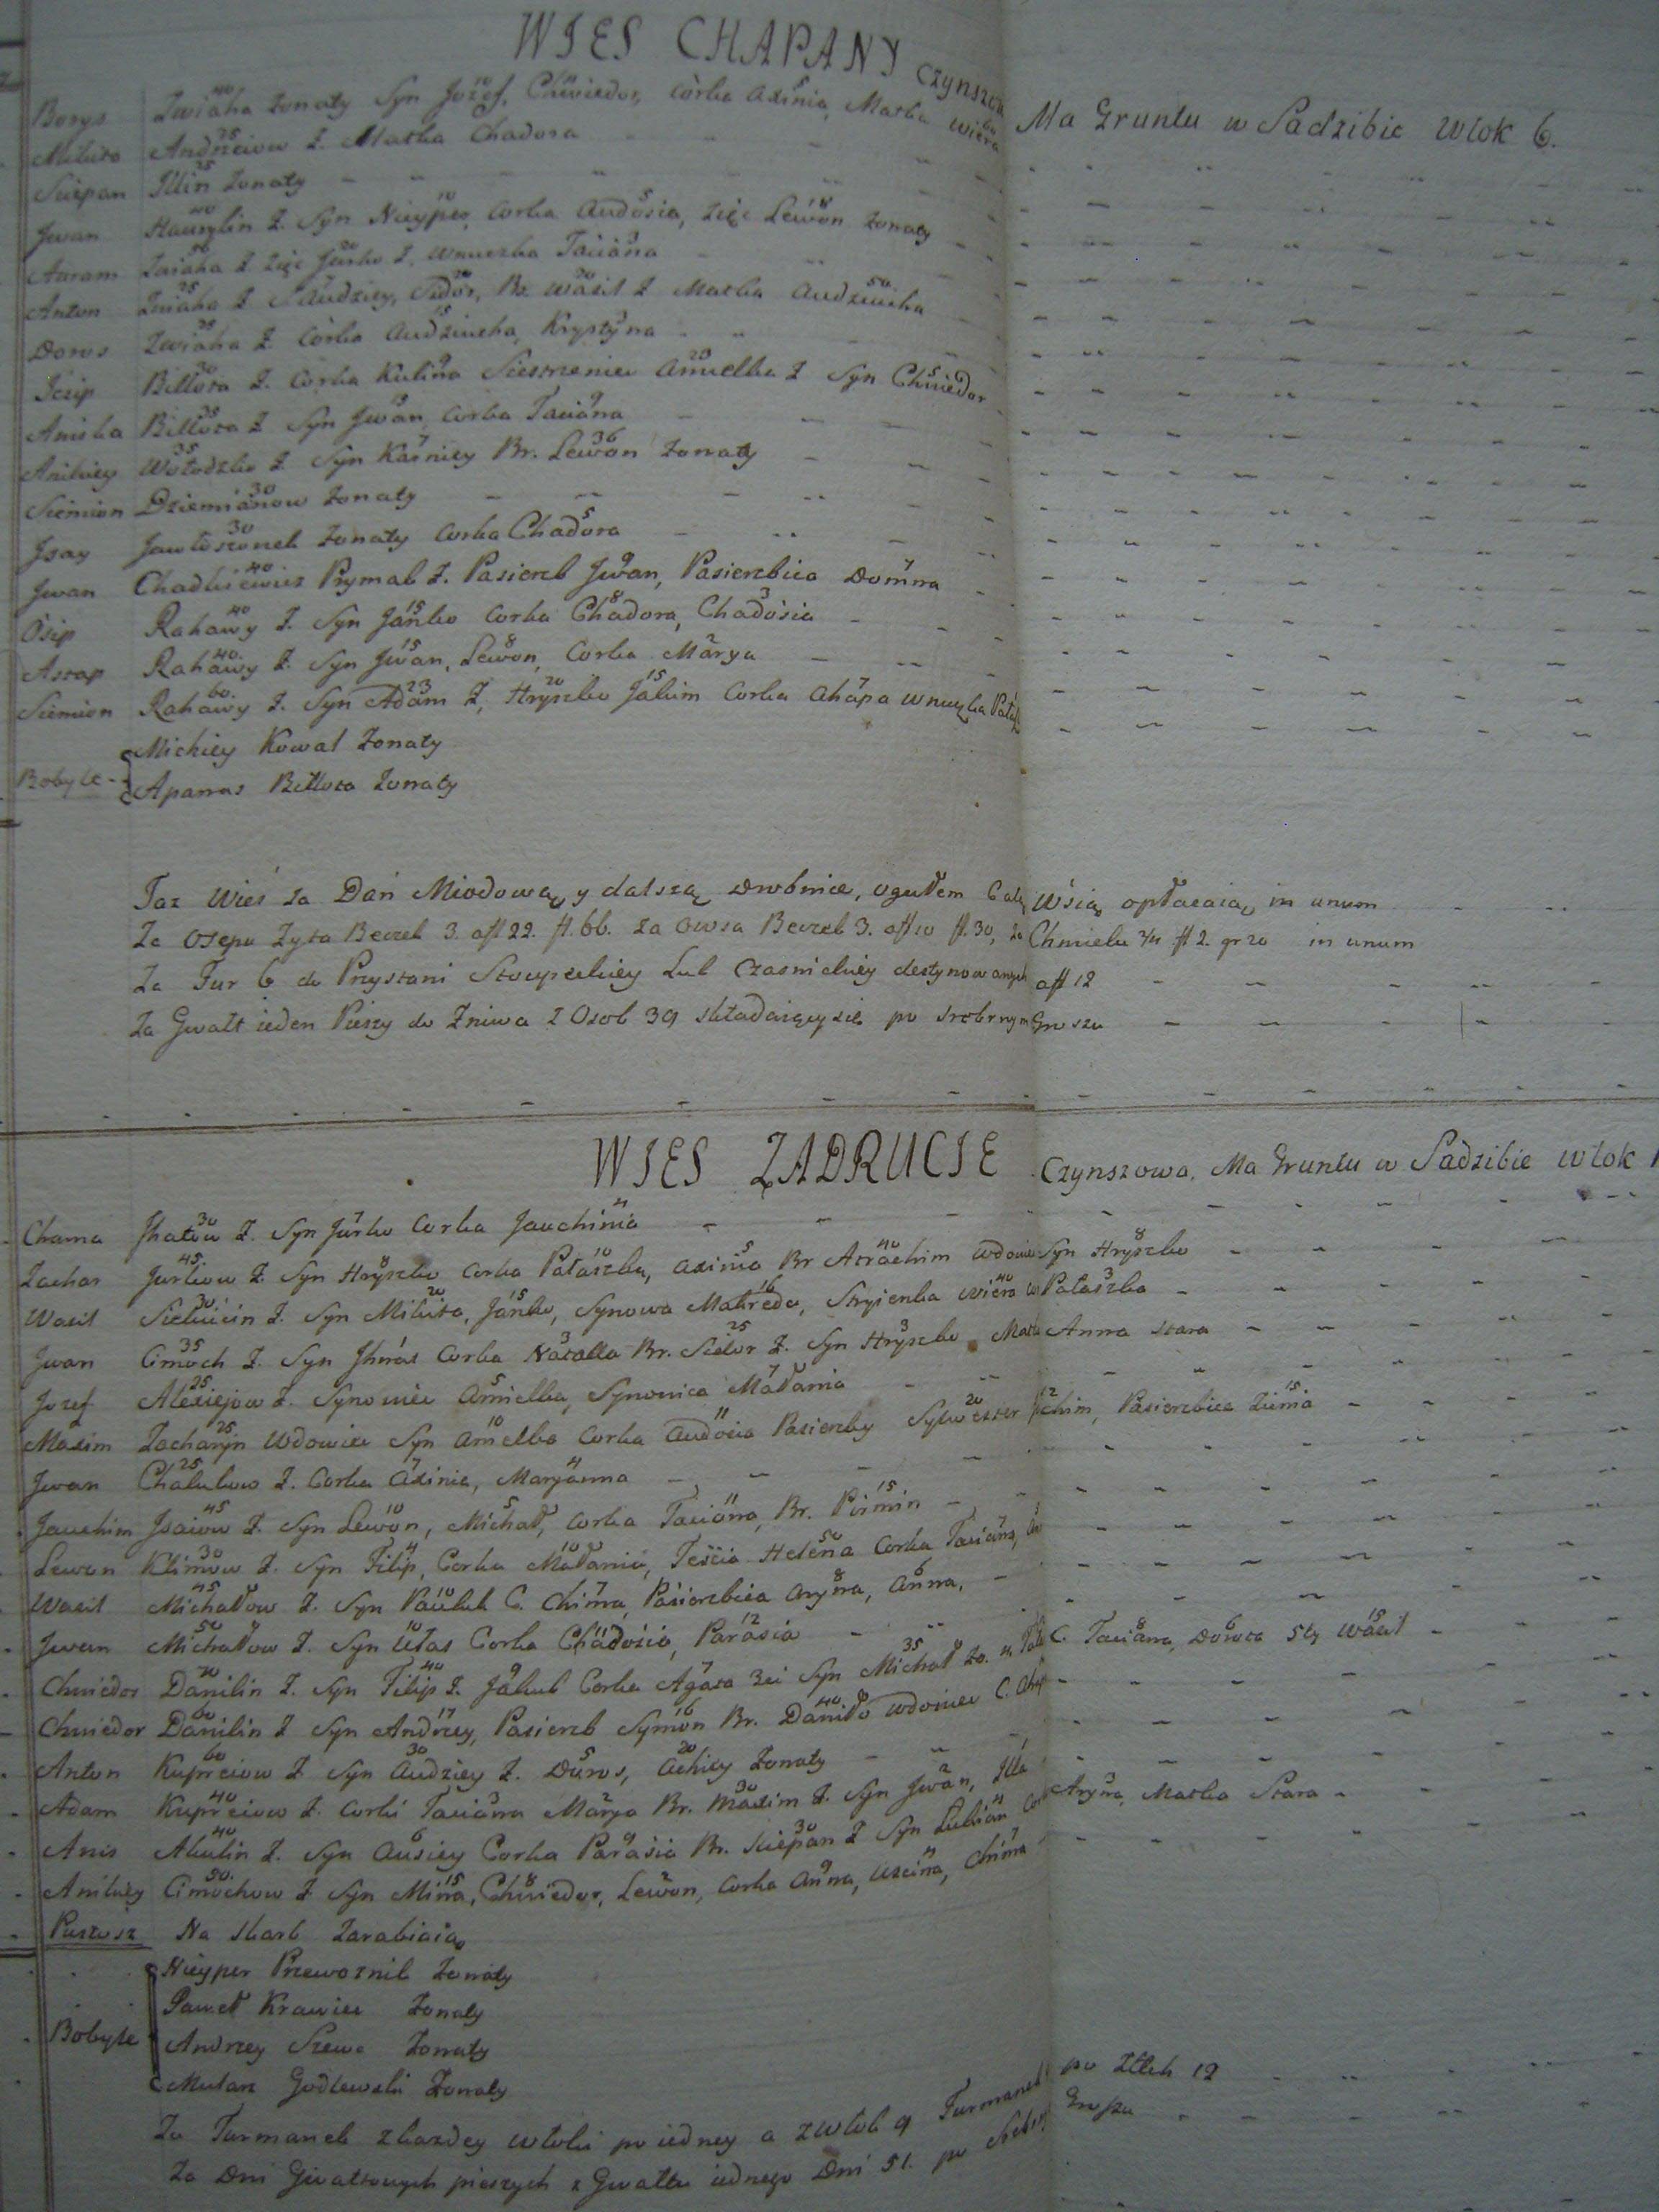 WIES CHAPANY Czynszowa Ma Gruntu w Sadzibie Wlok 6.
Borys Zwiaha 40 żonaty Syn Jozef 10, Chwiedor, Corka Axinia 5, Matka Wiera 60
Mikita Andrzeiow 25 Ż. Matka Chadora
Sciepan Jllin 35 żonaty
Jwan Hawrylin 40 Ż. Syn Nieyper 10, Corka Audosia 5, Zięć Lewon 18 żonaty
Auram Zwiaha 50 Ż Zięć Jurko 20 Ż. Wnuczka Taciana 3
Anton Zwiaha 25 Ż S Audziey, Sidor, Br. Wasil 20 Ż Matka Audziucha 50
Doros Zwiaha 25 Ż Corka Audziucha 15, Krystyna
Jesip Billota 30 Ż. Corka Kulina 9 Siestrzeniec Amielka 25 Ż Syn Chwiedor 5
Aniska Billota 35 Ż Syn Jwan, Corka Taciana 9
Anikiey Wołodzko 35 Ż. Syn Karniey 7 Br. Lewon 36 żonaty
Siemion Dziemianow 30 żonaty
Jsay Jawłoszonek 30 żonaty Corka Chadora 5
Jwan Chadkiewicz 40 Prymak Ż. Pasierzb Jwan 9, Pasierzbica Domna 7
Osip Rahawy 40 Ż. Syn Janko 15 Corka Chadora 8, Chadosia 3
Astap Rahawy 40 Ż. Syn Jwan 15, Lewon 8, Corka Marya 2
Siemion Rahawy 60 Ż. Syn Adam 23 Ż, Hryszko 20 Jakim 15 Corka Ahapa 7 Wnuczka
Bobyle Michiey Kowal żonaty
Apanas Billota żonaty
Taż Wieś za Dań Miodową y dalszą drobnicę, ogułem Całą Wsią opłacaią in unum
Za Osepu Żyta Beczek 3. aƒł 22. ƒł. 66. za Owsa Beczek 3. aƒł 10 ƒł. 30, za Chmielu ¾ ƒł 2. gr 20 in unum
Za Fur 6 do Przystani Stoupeckiey Lub Czasnickiey destynowanych aƒł 12
Za Gwałt ieden Pieszy do Żniwa z Osob 39 składaiący się po srebrnym Groszu
WIES ZADRUCIE Czynszowa. Ma Gruntu w Sadzibie Wlok
Chama Jhatow 30 Ż. Syn Jurko 7 Corka Jauchimia 4
Zachar Jurkow 45 Ż. Syn Hryszko 8 Corka Pałaszka 10, Axinia 5 Br Astachim 40 Wdowiec Syn Hryszko 8
Wasil Sielucin 30 Ż. Syn Mikita 20, Janko 15, Synowa Mahreda 16, Stryienka Wiera 40 Pałaszka 3
Jwan Cimoch 35 Ż. Syn Jhnas Corka Natalla 3 Br. Sidor 25 Ż. Syn Hryszko 3 Matka Anna stara
Jozef Alexiejow 25 Ż. Synowiec Amielka 5, Synowica Małania 7
Maxim Zacharyn 25 Wdowiec Syn Amelka 10 Corka Audosia 11 Pasierzby Sylwester 20 Jachim 12, Pasierzbica Zinia 15
Jwan Chalukow 25 Ż. Corka Axinia 7, Maryanna 4
Jauchim Jsaiow 45 Ż. Syn Lewon 10, Michał 5, Corka Taciana 11, Br. Pirmin 15
Lewon Klimow 30 Ż. Syn Filip 4, Corka Małania 10, Teścia Helena 50 Corka Taciana 7
Wasil Michałow 45 Ż. Syn Paułuk 10 C. Chima 7, Pasierzbica Aryna 8, Anna 6,
Jwan Michałow 50 Ż. Syn Ułas 10 Corka Chadosia, Parasia 12
Chwiedor Danilin 70 Ż. Syn Filip 40 Ż. Jakub 9 Corka Agata 7 3ci Syn Michał 35 C. Taciana 8, Dorota 6 Wasil 15
Chwiedor Danilin 60 Ż Syn Andrzey 17, Pasierzb Symon 16 Br. Daniło 40 wdowiec C.
Anton Kupreiow 60 Ż Syn Audziey 30 Ż. Doros 5, Achiey 20 żonaty
Adam Kupreiow 40 Ż. Corki Taciana Marya 2 Br. Maxim 30 Ż. Syn Jwan 2, Aryna, Matka Stara
Anis Akulin 40 Ż. Syn Ausiey 6 Corka Parasia 9 Br. Sciepan 30 Ż Syn Lukian 4
Anikiey Cimochow 50 Ż Syn Mina 15, Chwiedor 8, Lewon 2, Corka Anna 9, Uscina 4, Chima 7
Pustosz Na Skarb Zarabiaią
Bobyle Nieyper Przewoznik żonaty
Paweł Krawiec żonaty
Andrzey Szewc żonaty
Mulan Godlewski żonaty
Za Furmanek z każdey włoki po iedney a z Włok 9 Furmanek po Złłch 12
Za Dni Gwałtowych pieszych z Gwałtu iednego Dni 51. po srebrnym Groszu